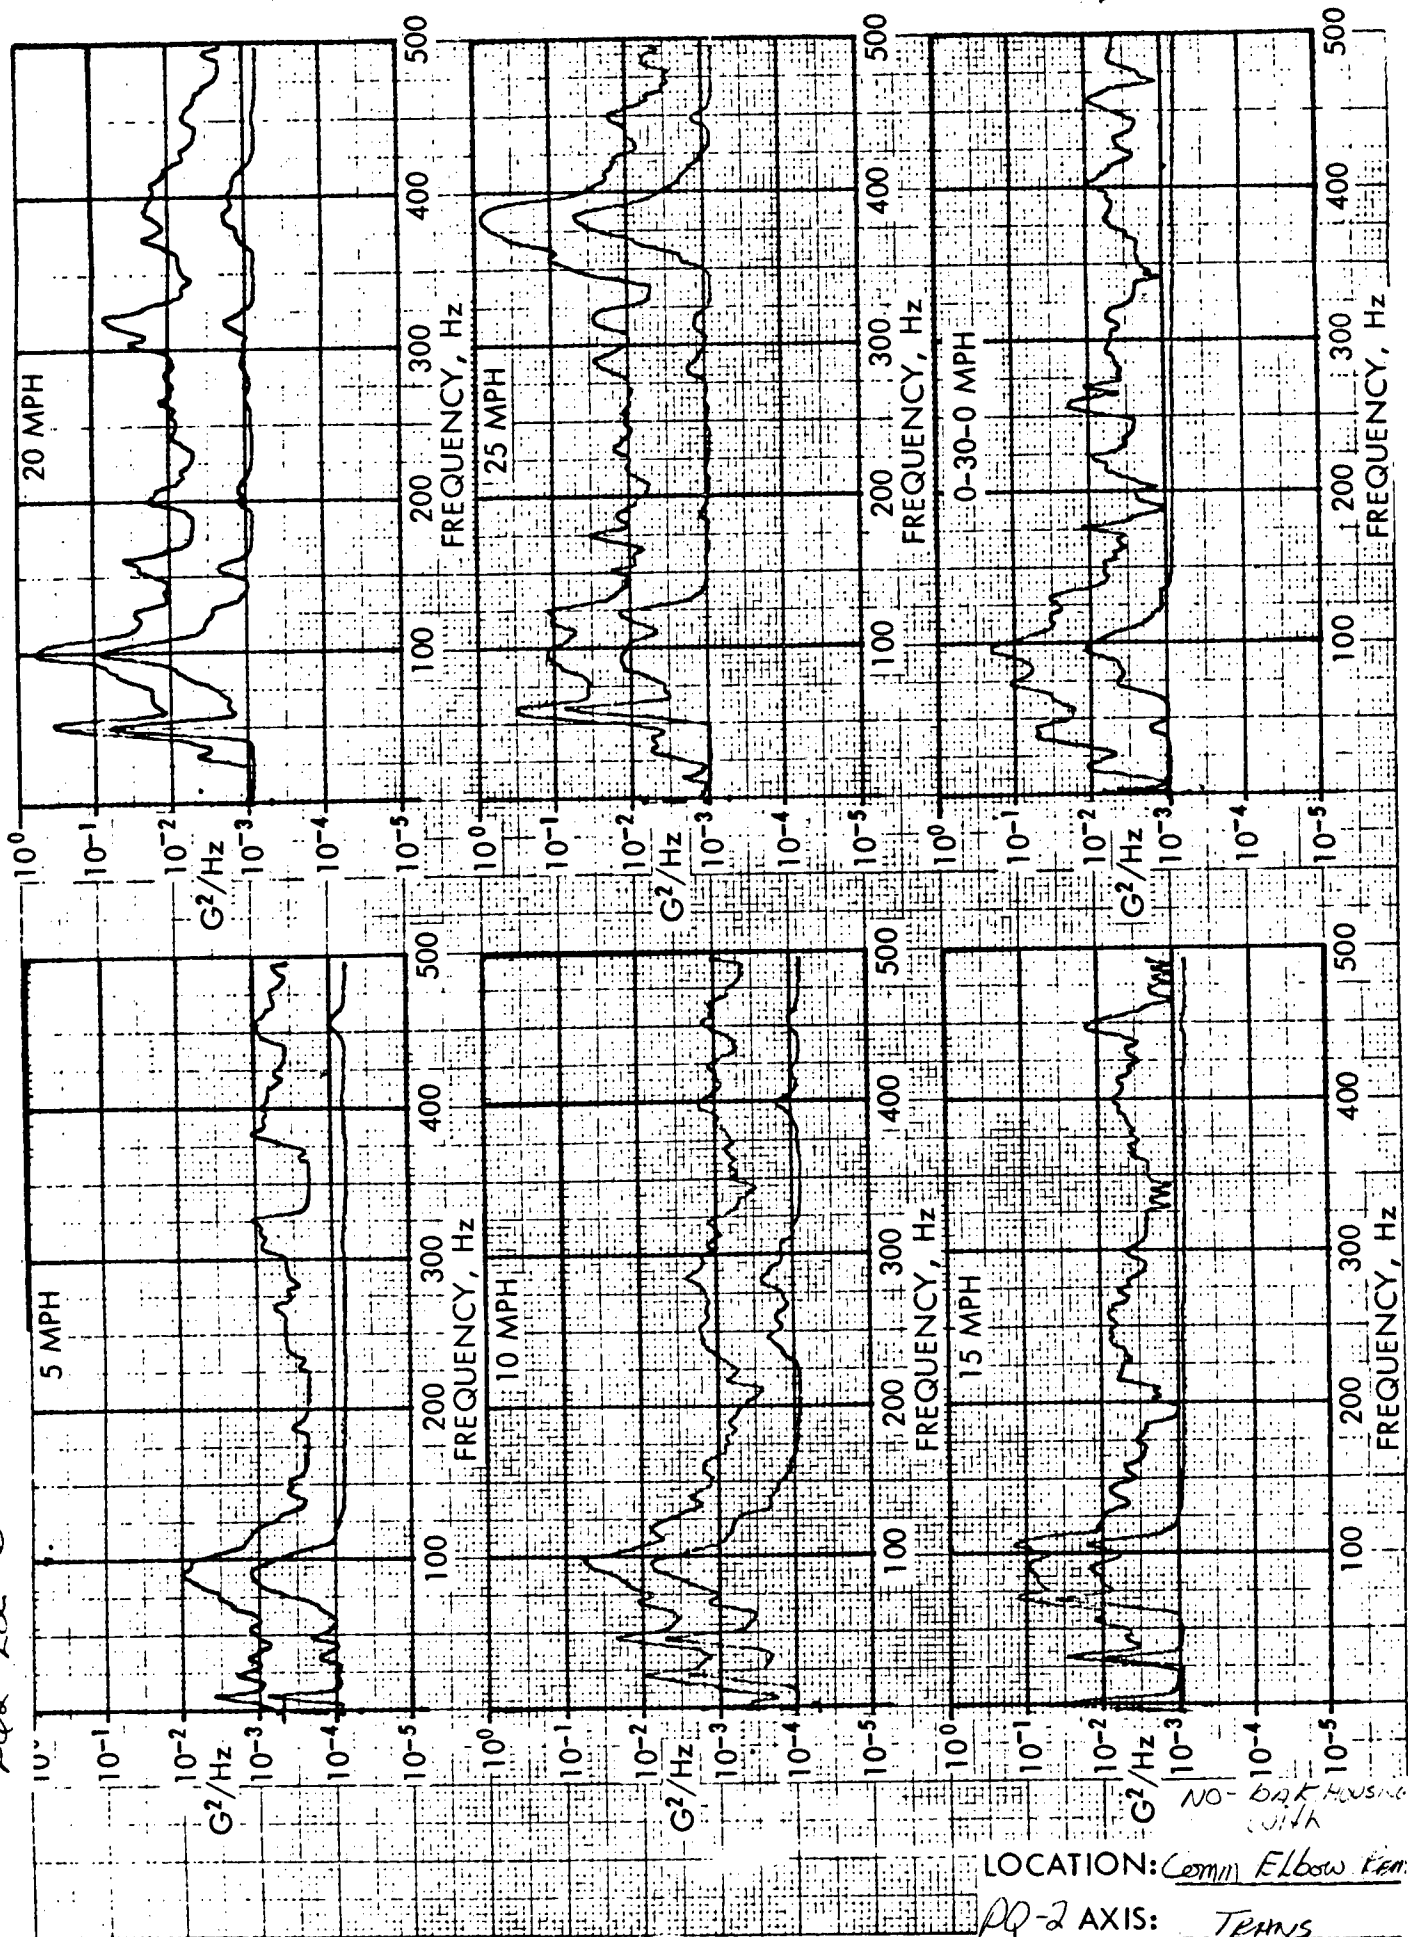 5 MPH
10⁻¹
10⁻²
10⁻³
10⁻⁴
10⁻⁵
G²/Hz
100
200
300
400
500
FREQUENCY, Hz
10 MPH
10⁰
10⁻¹
10⁻²
10⁻³
10⁻⁴
10⁻⁵
G²/Hz
100
200
300
400
500
FREQUENCY, Hz
15 MPH
10⁰
10⁻¹
10⁻²
10⁻³
10⁻⁴
10⁻⁵
G²/Hz
100
200
300
400
500
FREQUENCY, Hz
20 MPH
10⁰
10⁻¹
10⁻²
10⁻³
10⁻⁴
10⁻⁵
G²/Hz
100
200
300
400
500
FREQUENCY, Hz
25 MPH
10⁰
10⁻¹
10⁻²
10⁻³
10⁻⁴
10⁻⁵
G²/Hz
100
200
300
400
500
FREQUENCY, Hz
0-30-0 MPH
10⁰
10⁻¹
10⁻²
10⁻³
10⁻⁴
10⁻⁵
G²/Hz
100
200
300
400
500
FREQUENCY, Hz
NO-
with
LOCATION: Elbow
PQ-2 AXIS: TRANS